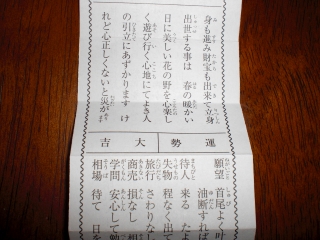 身も進み財宝も出来て立身
出世する事は 春の暖かい
日に美しい花の野を心楽し
く遊び行く心地にてよき人
の引立にあずかります け
れど心正しくないと災があ
運勢
大吉
願望 首尾よく叶
油断すれば
待人 来る たよ
失物 程なく出て
旅行 さわりなし
商売 損なし 相
学問 安心して勉
相場 待て 日を